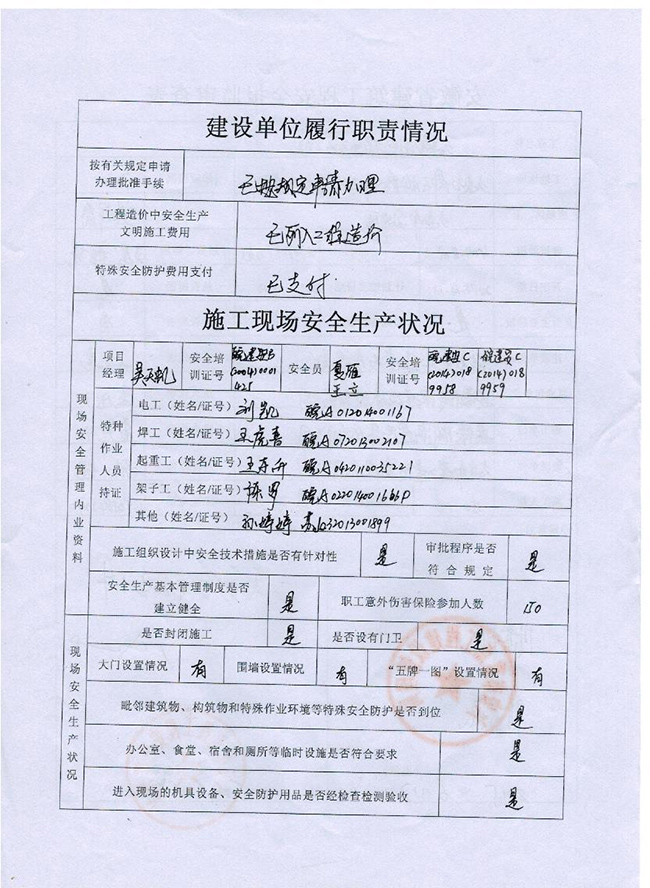 建设单位履行职责情况
按有关规定申请
办理批准手续
已按规定申请办理
工程造价中安全生产
文明施工费用
已列入工程造价
特殊安全防护费用支付
已支付.
施工现场安全生产状况
项目
经理
安全培
训证号
皖建安B
(2014)0001
425
安全员
夏雁
王立
安全培
训证号
皖建安C
(2014)018
9958
皖建安C
(2014)018
9959
现场安全管理内业资料
特种
作业
人员
持证
电工(姓名/证号) 刘凯 皖A012014001167
焊工(姓名/证号) 王虎喜 皖A072013002107
起重工(姓名/证号) 皖A042011003522
架子工(姓名/证号)
其他(姓名/证号) 孙婷婷
施工组织设计中安全技术措施是否有针对性
是
审批程序是否
符合规定
是
安全生产基本管理制度是否
建立健全
是
职工意外伤害保险参加人数
150
现场安全生产状况
是否封闭施工
是
是否设有门卫
是
大门设置情况
有
围墙设置情况
有
“五牌一图”设置情况
有
毗邻建筑物、构筑物和特殊作业环境等特殊安全防护是否到位
是
办公室、食堂、宿舍和厕所等临时设施是否符合要求
是
进入现场的机具设备、安全防护用品是否经检查检测验收
是